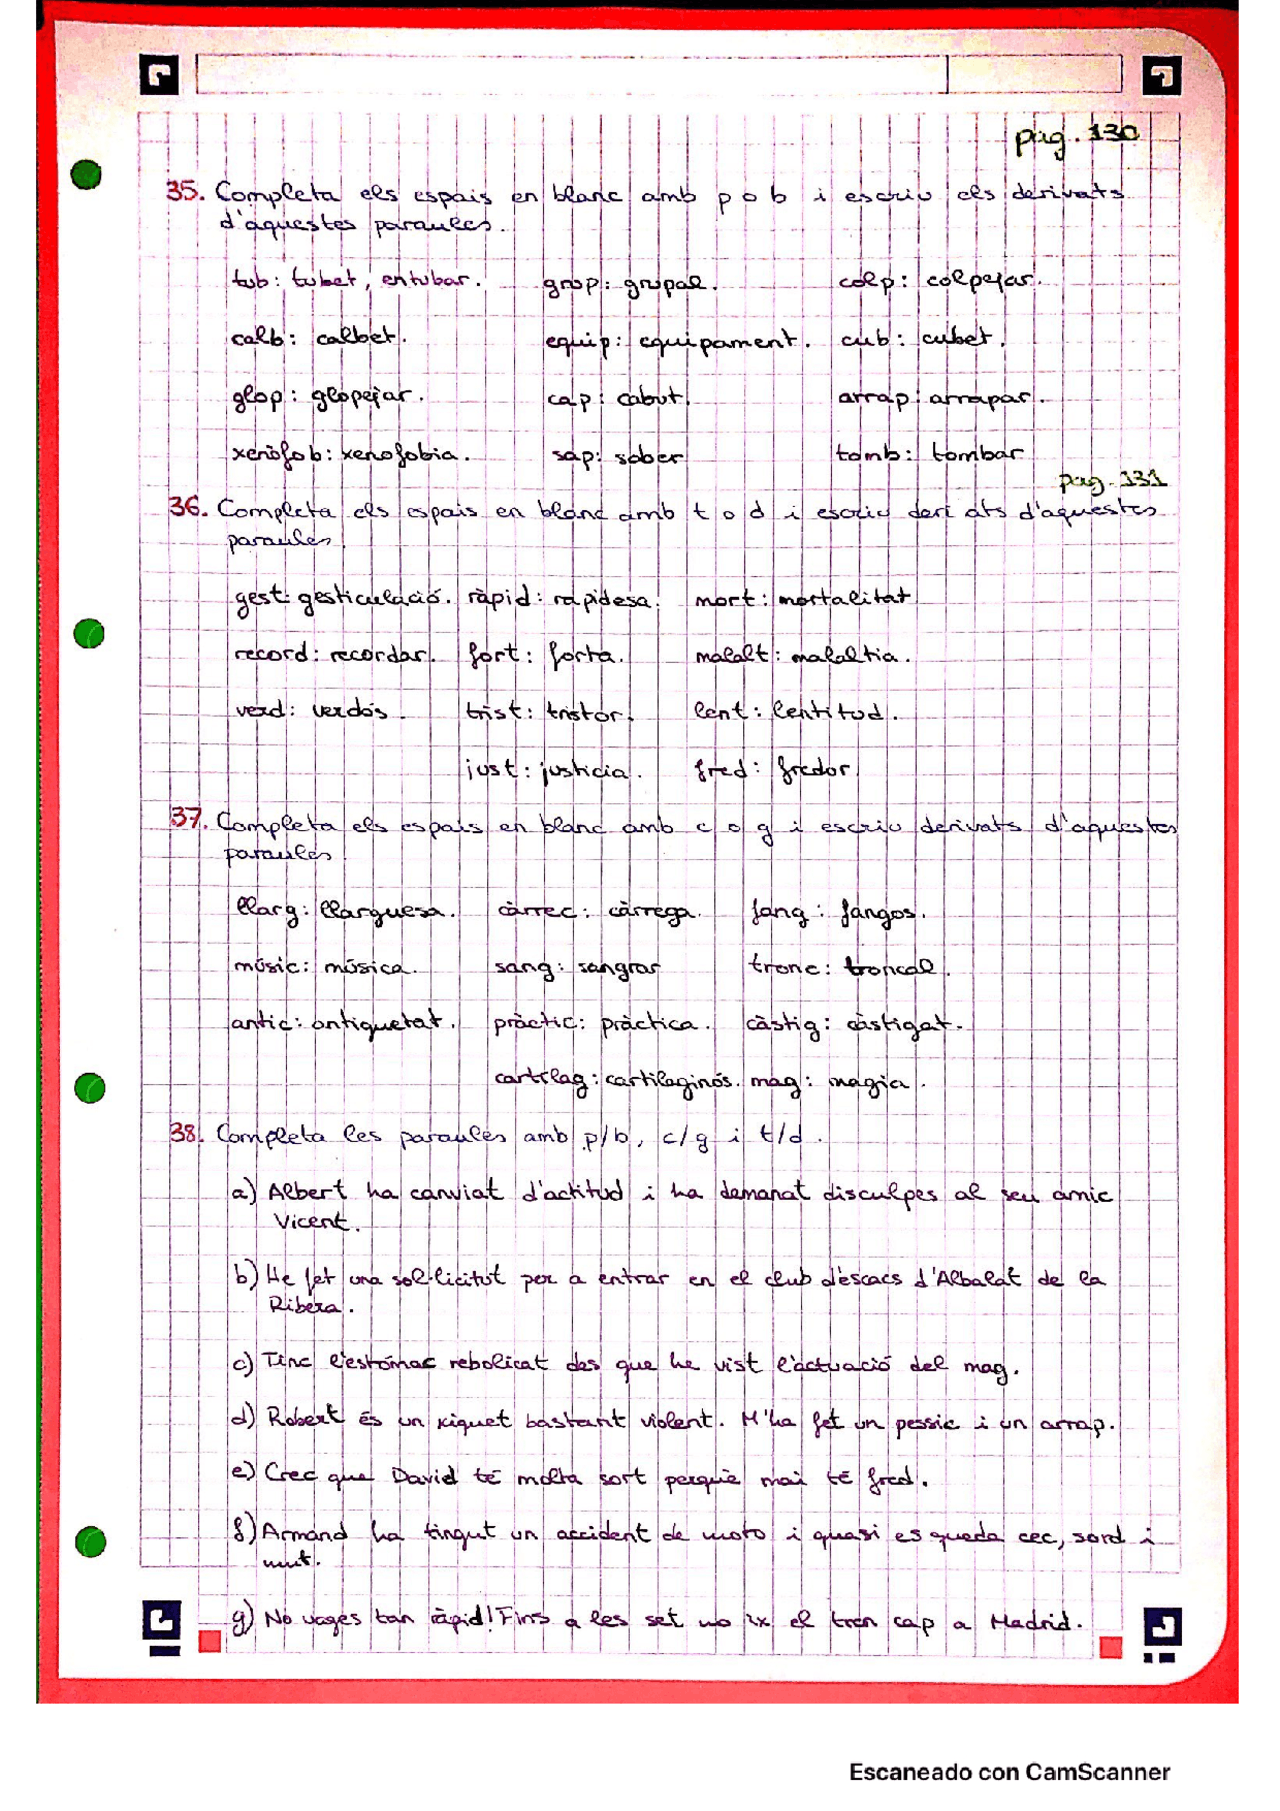 pag. 130
35. Completa els espais en blanc amb p o b i escriu els derivats
d'aquestes paraules.
tub: tubet, entubar. grup: grupal. colp: colpejar.
calb: calbet. equip: equipament. cub: cubet.
glop: glopejar. cap: cabut. arrap: arrapar.
xenòfob: xenofobia. sap: saber tomb: tombar
pag. 131
36. Completa els espais en blanc amb t o d i escriu deri ats d'aquestes
paraules
gest: gesticulació. ràpid: rapidesa. mort: mortalitat
record: recordar. fort: forta. malalt: malaltia.
verd: verdós. trist: tristor. lent: lentitud.
just: justicia. fred: fredor.
37. Completa els espais en blanc amb c o g i escriu derivats d'aquestes
paraules
llarg: llarguesa. càrrec: càrrega. fang: fangos.
músic: música. sang: sangrar tronc: troncal.
antic: antiquetat. pràctic: pràctica. càstig: càstigat.
cartílag: cartilaginós. mag: magia.
38. Completa les paraules amb p/b, c/g i t/d.
a) Albert ha canviat d'actitud i ha demanat disculpes al seu amic
Vicent.
b) He fet una sol·licitut per a entrar en el club d'escacs d'Albalat de la
Ribera.
c) Tinc l'estómac rebolicat des que he vist l'actuació del mag.
d) Robert és un xiquet bastant violent. M'ha fet un pessic i un arrap.
e) Crec que David té molta sort perquè mai té fred.
f) Armand ha tingut un accident de moto i quasi es queda cec, sord i
mut.
g) No vages tan ràpid! Fins a les set no ix el tren cap a Madrid.
Escaneado con CamScanner